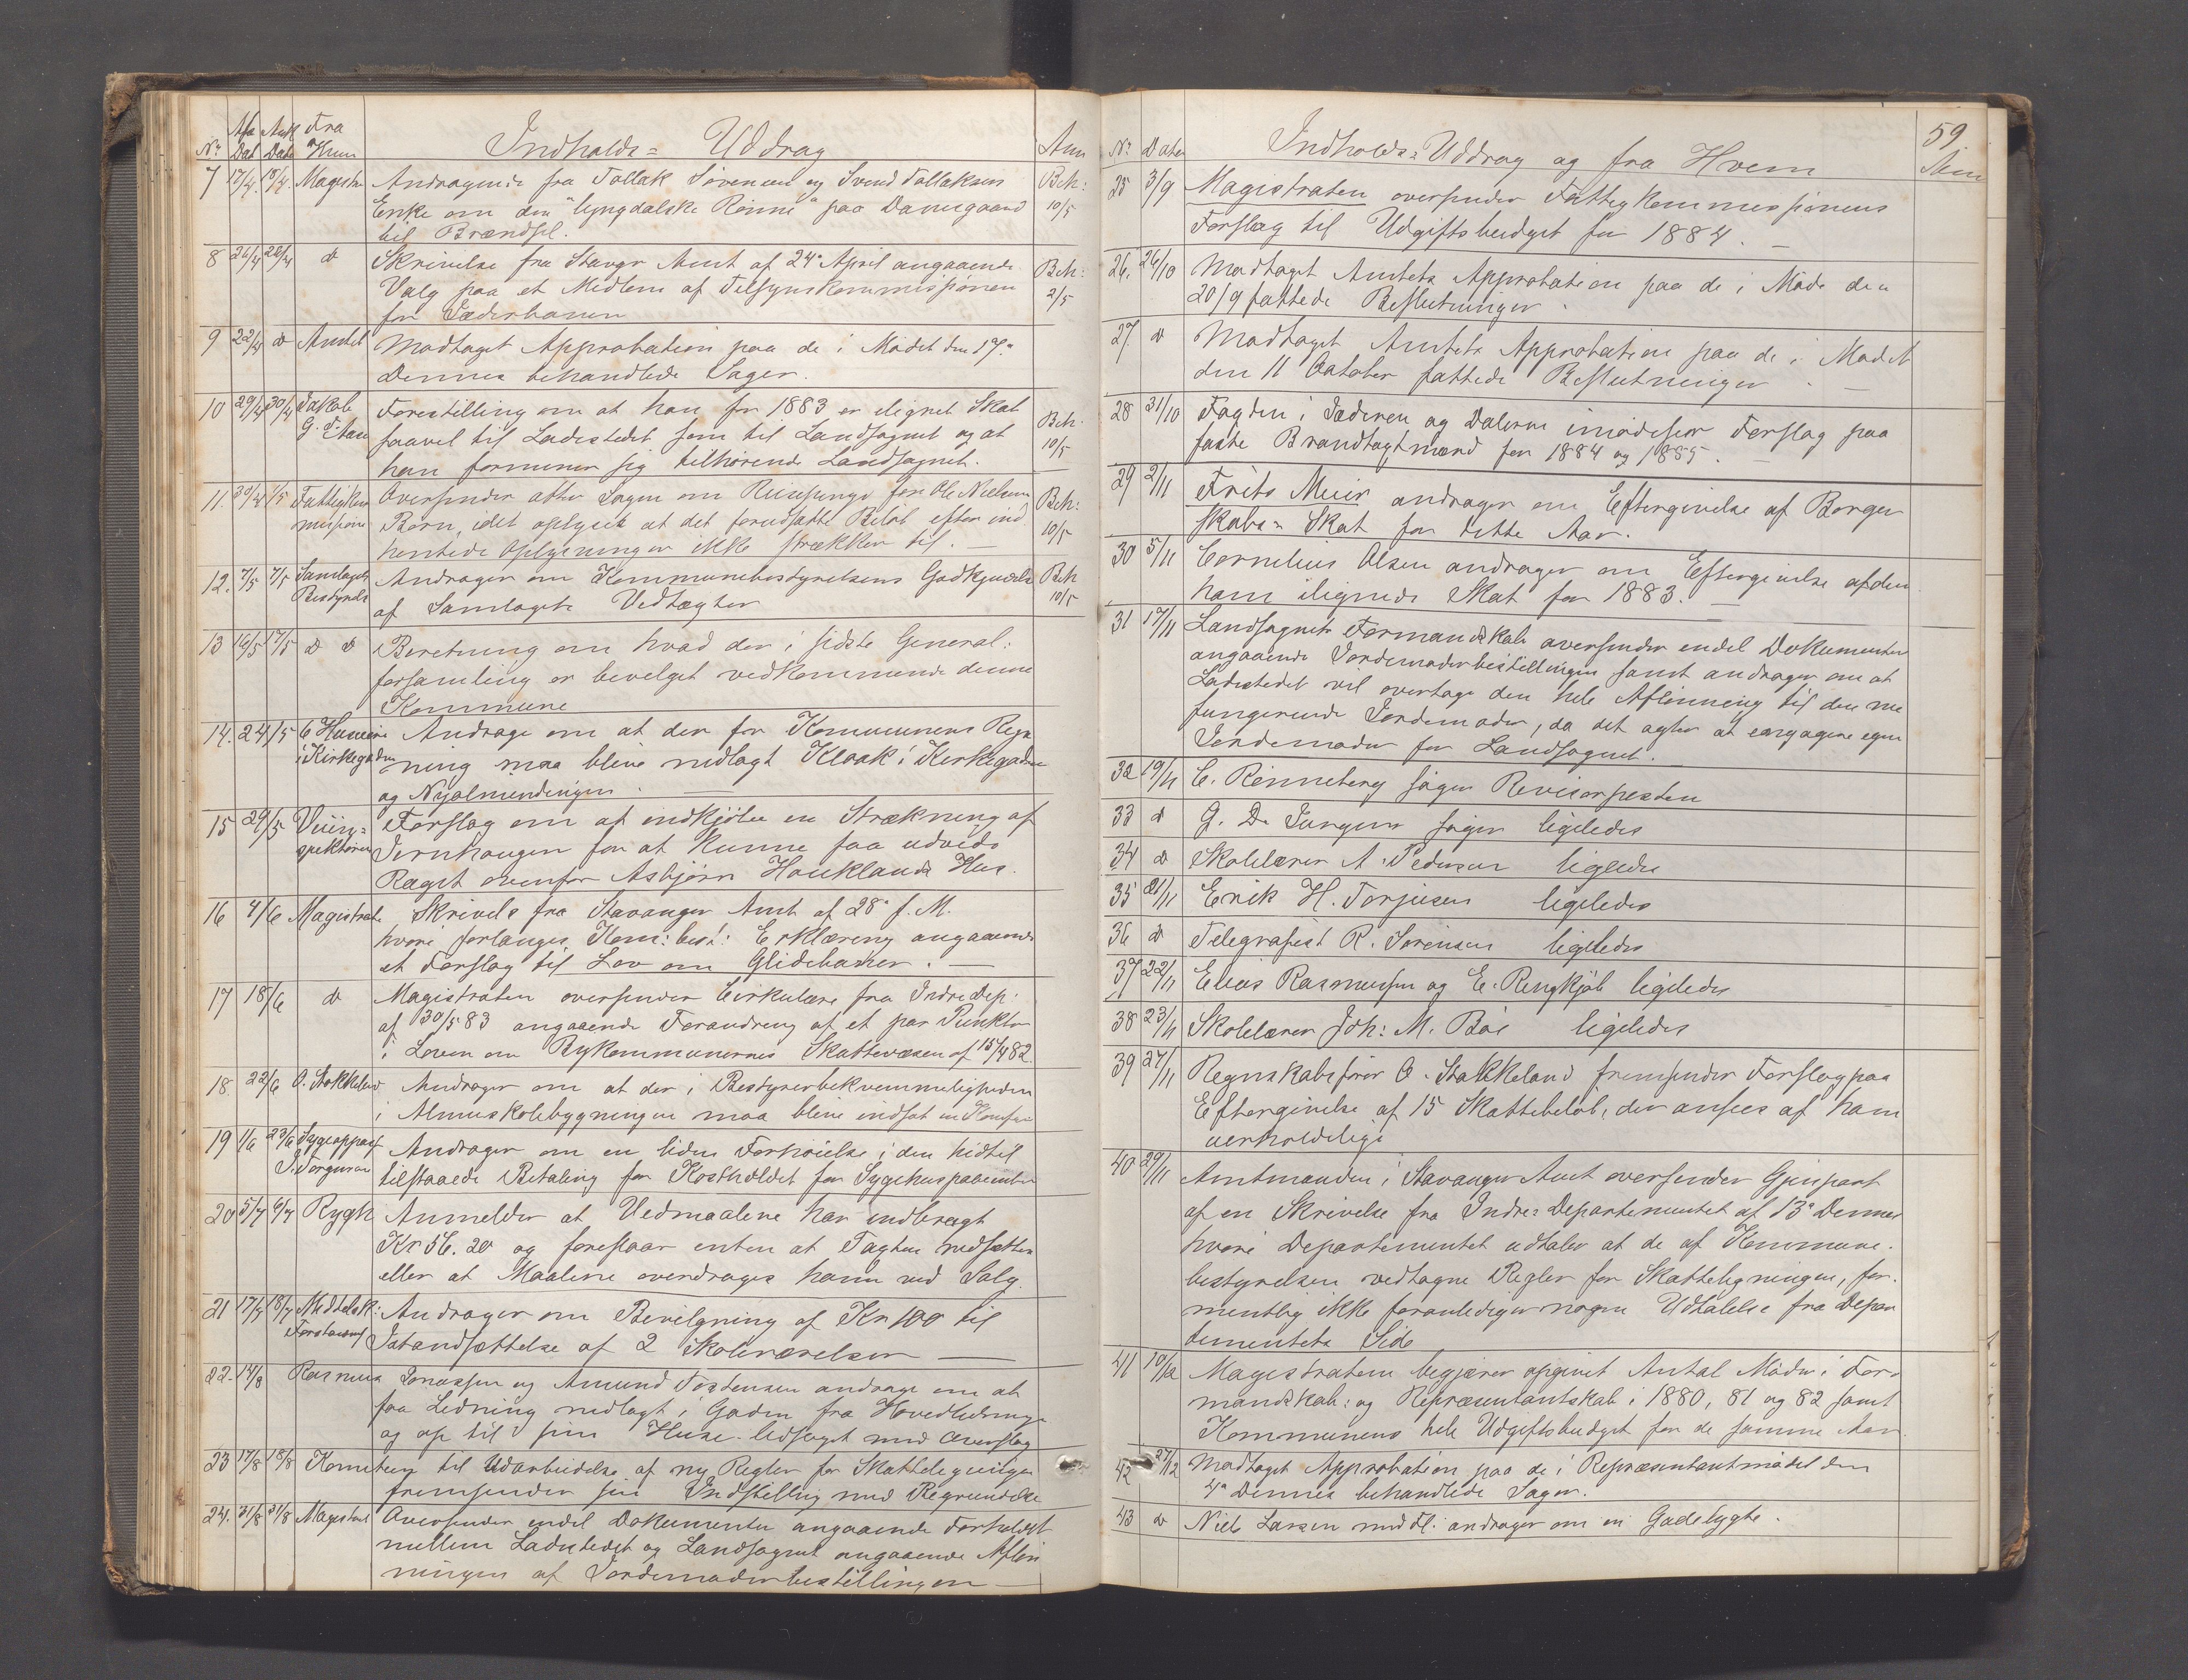 Nr Afs Dat Ank Date Fra Hvem Indholds= Uddrag Anm
7 17/4. 18/4. Magistr Andragende fra Tollak Sørensen og Svend Tollaksens Beh:
Enke om den "lyngdalske Rønne" paa Damsgaard 10/5
til Brændsel.
8 26/4 28/4 do Skrivelse fra Stavgr Amt af 24de April angaaende Beh:
Valg paa et Medlem af Tilsynskommissionen 2/5
for Jæderbanen
9 22/4 do Amtet Modtaget Approbation paa de i Mødet den 17de
Dennes behandlede Sager.
10 29/4 30/4 Jakob G. F. Aase Forestilling om at han for 1883 er ilignet Skat Beh.
saavel til Ladestedet som til Landsognet og at 10/5
han formener sig tilhørende Landsognet.
11. 30/4 1/5 Fattigkommissionen Oversender atter Sagen om Reisepenge for Ole Nielsens Beh:
Børn, idet oplyses at det forudsatte Beløb efter ind 10/5
hentede Oplysninger ikke strækker til.
12. 7/5 7/5 Samlagets Bestyrelse Andrager om Kommunebestyrelsens Godkjendelse Beh
af Samlagets Vedtægter 10/5
13 16/5 17/5 do do Beretning om hvad der i sidste General:
forsamling er bevilget vedkommende denne
Kommune
14. 24/5 6 Huseiere i Kirkegaden Andrage om at der for Kommunens Reg
ning maa blive nedlagt Kloak i Kirkegaden
og Nyalmendingen. —
15 29/5 Veiinspektøren Forslag om at indkjøbe en Strækning af
Jernhaugen for at kunne faa udvide
Ræget ovenfor Asbjørn Hauklands Hus.
16 4/6 Magistrate Skrivelse fra Stavanger Amt af 28de f. M.
hvori forlanges Kom: best: Erklæring angaaende
et Forslag til Lov om Glidebaner. —
17 18/6 do Magistraten oversender Cirkulære fra Indre Dep:
af 30/5 83 angaaende Forandring af et par Punkter
i Loven om Bykommunernes Skattevæsen af 15/4 82
18. 22/6 O. Stokkeland Andrager om at der i Bestyrerbekvemmeligheden
i Almueskolebygningen maa blive indsat en Komfur
19 1/6 23/6 Sygeoppass J. Torgersen Andrager om en liden Forhøielse i den hidtil
tilstaaede Betaling for Kostholdet for Sygehuspatienter
20 5/7 6/7 Rygh Anmelder at Vedmaalene har indbragt
Kr 56. 20 og foreslaar enten at Tagten nedsættes
eller at Maalene overdrages ham ved Salg.
21 17/7 18/7 Middelsk: Forstander Andrager om Bevilgning af Kr 100 til
Istandsættelse af 2 Skoleværelser —
22. 14/8 Rasmus Jonassen og Amund Tostensen andrage om at
faa Ledning nedlagt i Gaden fra Hovedledningen
og op til sine Huse. ledsaget med Overslag
23 17/8 18/8 Komiteen til Udarbeidelse af ny Regler for Skatteligningen
fremsender sin Indstilling med Begrundelse
24. 31/8 31/8 Magistrat Oversender endel Dokumenter angaaende Forholdet
mellem Ladestedet og Landsognet angaaende Afløn
ningen af Jordemoderbestillingen —
59
Nr Dato Indholds=Uddrag og fra Hvem Anm
25 3/9 Magistraten oversender Fattigkommissionens
Forslag til Udgiftsbudget for 1884. —
26. 26/10 Modtaget Amtets Approbation paa de i Møde den
20/9 fattede Beslutninger.
27 do Modtaget Amtets Approbation paa de i Mødet
den 11 Oktober fattede Beslutninger. —
28 31/10 Fogden i Jæderen og Dalerne imødeser Forslag paa
faste Brandtagstmænd for 1884 og 1885. —
29 2/11 Frits Meier andrager om Eftergivelse af Borger
skabs= Skat for dette Aar.
30 5/11 Cornelius Olsen andrager om Eftergivelse af den
ham ilignede Skat for 1883. —
31 17/11 Landsognets Formandskab oversender endel Dokumenter
angaaende Jordemoderbestillingen samt andrager om at
Ladestedet vil overtage den hele Aflønning til den nu
fungerende Jordemoder, da det agter at engagere egen
Jordemoder for Landsognet. —
32 19/11 C. Rønneberg søger Revisorposten
33 do G. D. Jørgens søger ligeledes
34 do Skolelærer A. Pedersen ligeledes
35 21/11 Erik H. Torjusen ligeledes
36 do Telegrafist R. Sørensen ligeledes
37 22/11 Elias Rasmussen og E. Ringkjøb ligeledes
38 23/11 Skolelærer Joh: M. Bøe ligeledes
39 27/11 Regnskabsfører O. Stokkeland fremsender Forslag paa
Eftergivelse af 15 Skattebeløb, der ansees af ham
uerholdelige
40 29/11 Amtmanden i Stavanger Amt oversender Gjenpart
af en Skrivelse fra Indre= Departementet af 13de Dennes
hvori Departementet udtaler at de af Kommune.
bestyrelsen vedtagne Regler for Skatteligningen, for.
mentlig ikke foranlediger nogen Udtalelse fra Depar
tementets Side
41 10/12 Magistraten begjærer opgivet Antal Møder i For=
mandskab: og Repræsentantskab i 1880, 81 og 82 samt
Kommunens hele Udgiftsbudget for de samme Aar.
42 27/12 Modtaget Approbation paa de i Repræsentantmødet den
4de Dennes behandlede Sager.
43 do Niels Larsen med Fl: andrager om en Gadelygte.